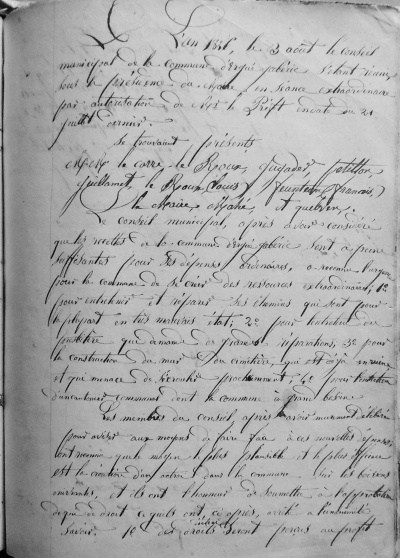 L'an 1846, le 3 août le conseil
municipal de la commune d'Ergué gabéric s'étant réuni
sous la présidence du Maire en séance extraordinaire
par autorisation de Mr le Préfet en date du 21
juillet dernier.
Se trouvaient présents
le Roux,
le Roux (Louis) (français)
le Maire, et
Le conseil municipal, après avoir considéré
que les recettes de la commune d'Ergué gabéric sont à peine
suffisantes pour les dépenses ordinaires, a reconnu l'urgence
pour la commune de se créer des ressources extraordinaires, 1º
pour entretenir et réparer les chemins qui sont pour
la plupart en très mauvais état; 2º pour l'entretien du
presbytère qui demande de grandes réparations, 3º pour
la construction du mur du cimetière, qui est déjà en ruine
et qui menace de s'écrouler prochainement; 4º pour l'entretien
dont la commune a grand besoin
Les membres du conseil, après avoir mûrement délibéré
pour aviser aux moyens de faire face à ces nouvelles dépenses,
ont reconnu que le moyen le plus plausible et le plus efficace
est la création d'un octroi dans la commune sur les boissons
suivantes, et ils ont l'honneur de soumettre à l'approbation
de qui de droit ce qu'ils ont, ci après, arrêté à l'unanimité
Savoir: 1º des droits seront perçus au profit